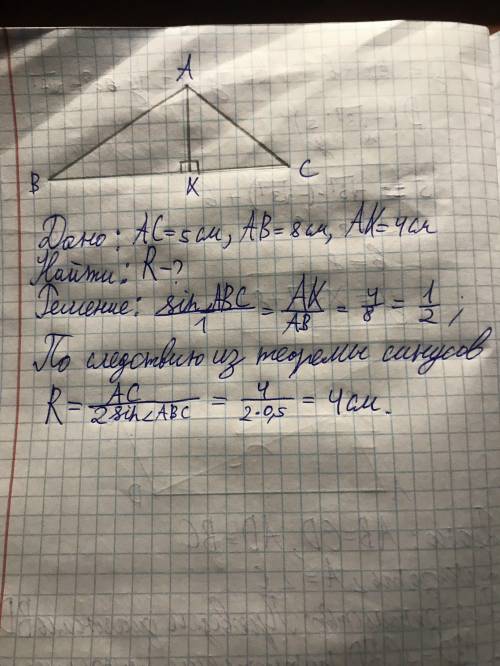 A
B
K
C
Дано: AC=5см, AB=8см, AK=4см
Найти: R-?
Решение: sin ABC/1 = AK/AB = 4/8 = 1/2;
По следствию из теоремы синусов
R = AC/2sin∠ABC = 4/2·0,5 = 4см.